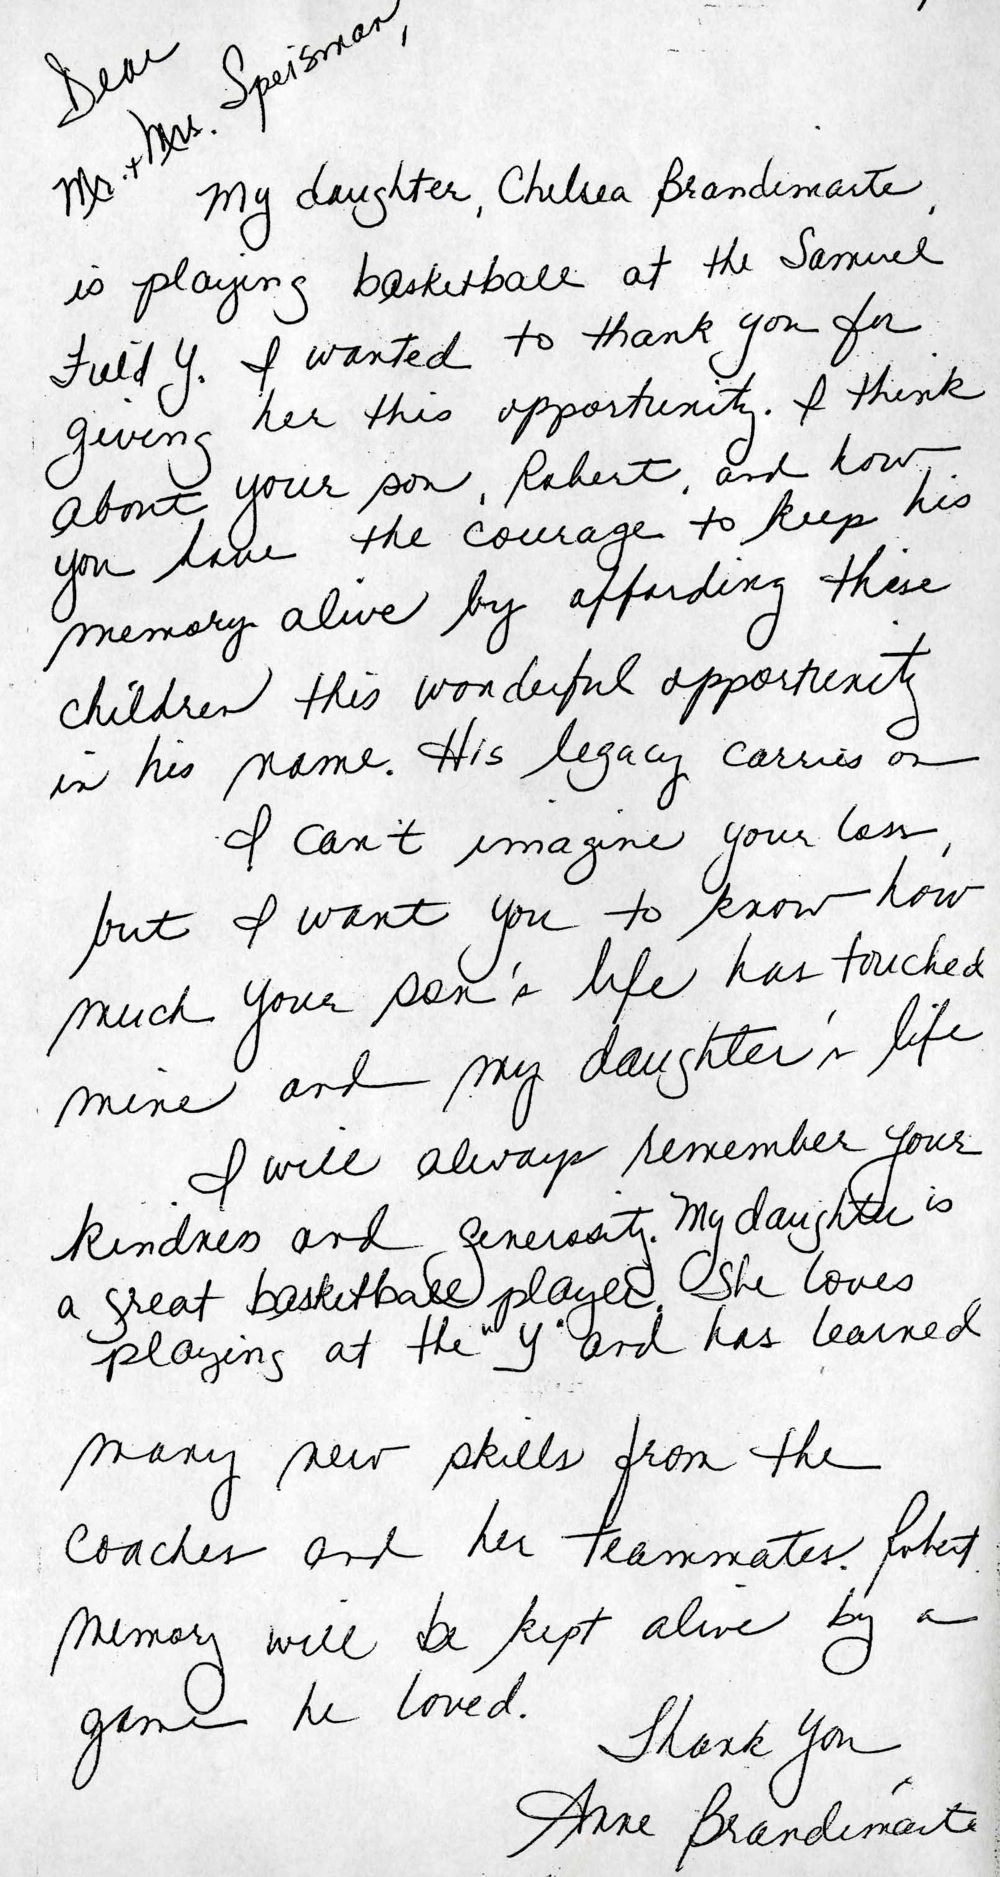 Dear
Mr. + Mrs. Speisman,
My daughter, Chelsea Brandimarte,
is playing basketball at the Samuel
Field Y. I wanted to thank you for
giving her this opportunity. I think
about your son, Robert, and how
you have the courage to keep his
memory alive by affording these
children this wonderful opportunity
in his name. His legacy carries on
I can't imagine your loss,
but I want you to know how
much your son's life has touched
mine and my daughter's life
I will always remember your
kindness and generosity. My daughter is
a great basketball player. She loves
playing at the "Y" and has learned
many new skills from the
coaches and her teammates. Robert
memory will be kept alive by a
game he loved.
Thank You
Anne Brandimarte